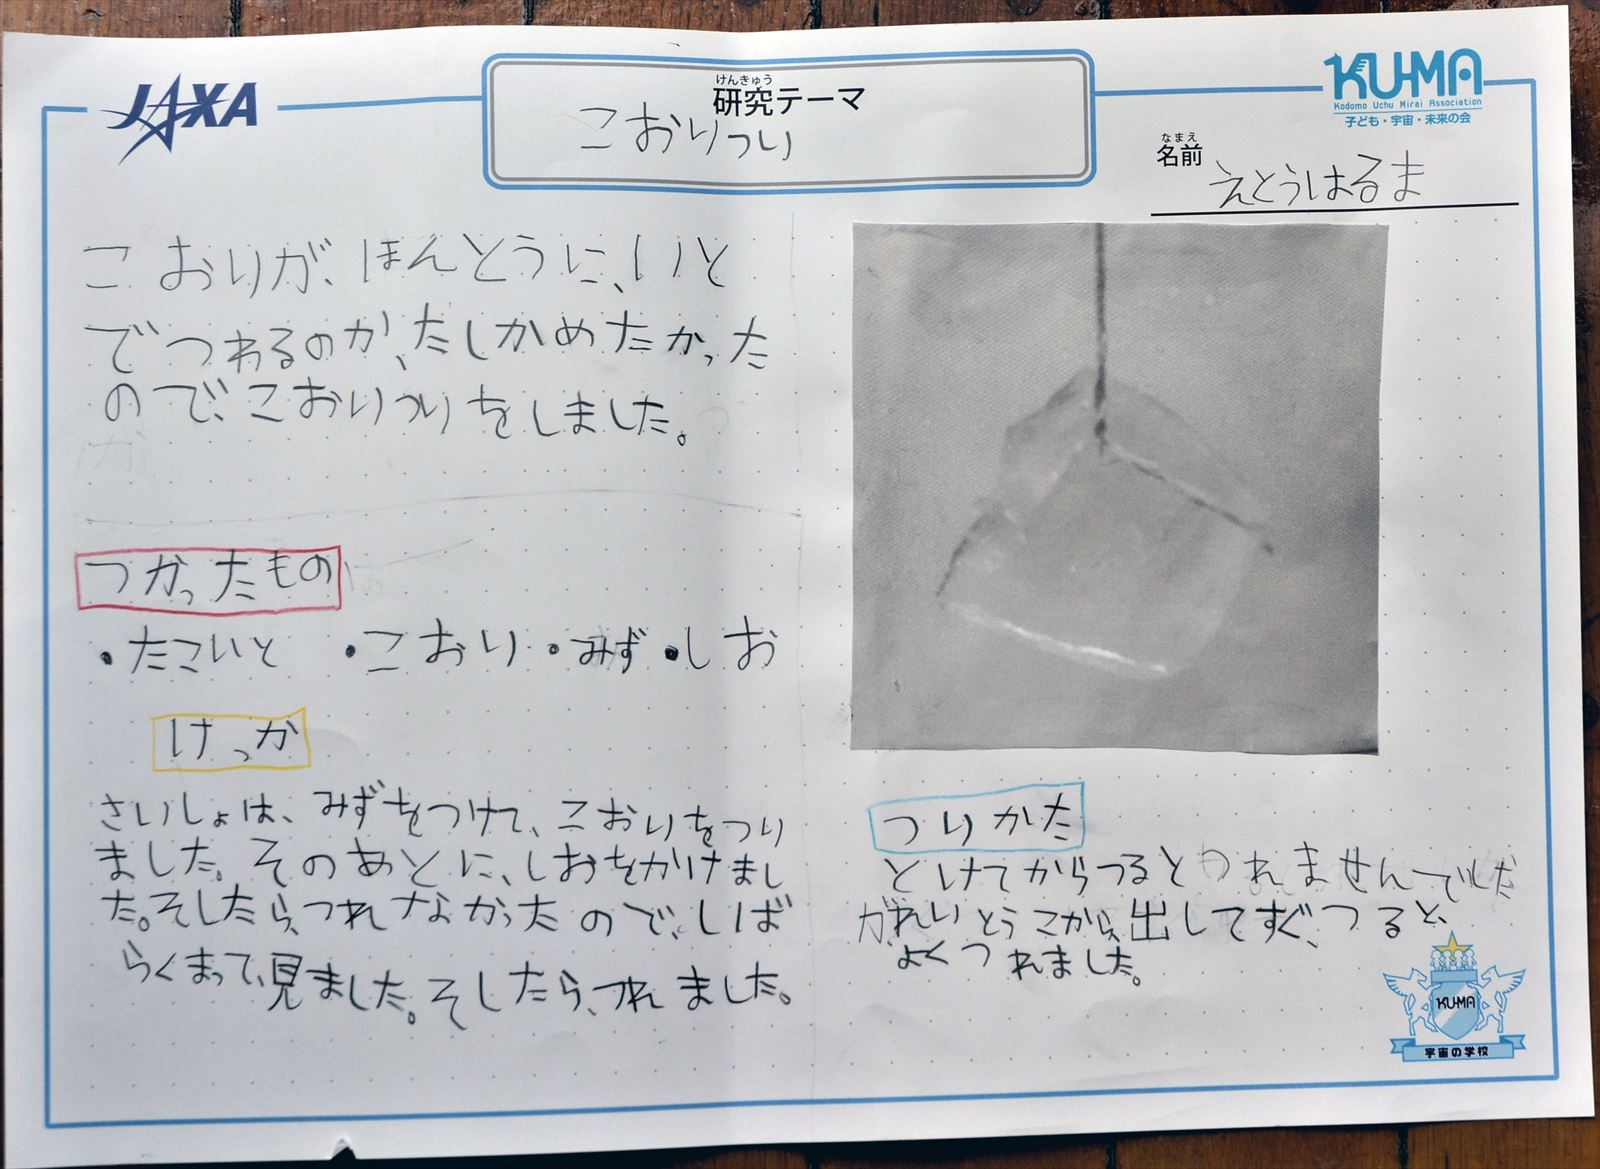 JAXA
けんきゅう
研究テーマ
こおりつり
KU-MA
Kodomo Uchu Mirai Association
子ども・宇宙・未来の会
なまえ
名前
えとうはるま
こおりが、ほんとうに、いと
でつわるのか、たしかめたかった
ので、こおりつりをしました。
つかったもの
・たこいと ・こおり・みず・しお
けっか
さいしょは、みずをつけて、こおりをつり
ました。そのあとに、しおをかけまし
た。そしたら、つれなかったので、しば
らくまって、見ました。そしたら、つれました。
つりかた
とけてからつるとつれませんでした
が、れいとうこから、出してすぐ、つると、
よくつれました。
KU-MA
宇宙の学校